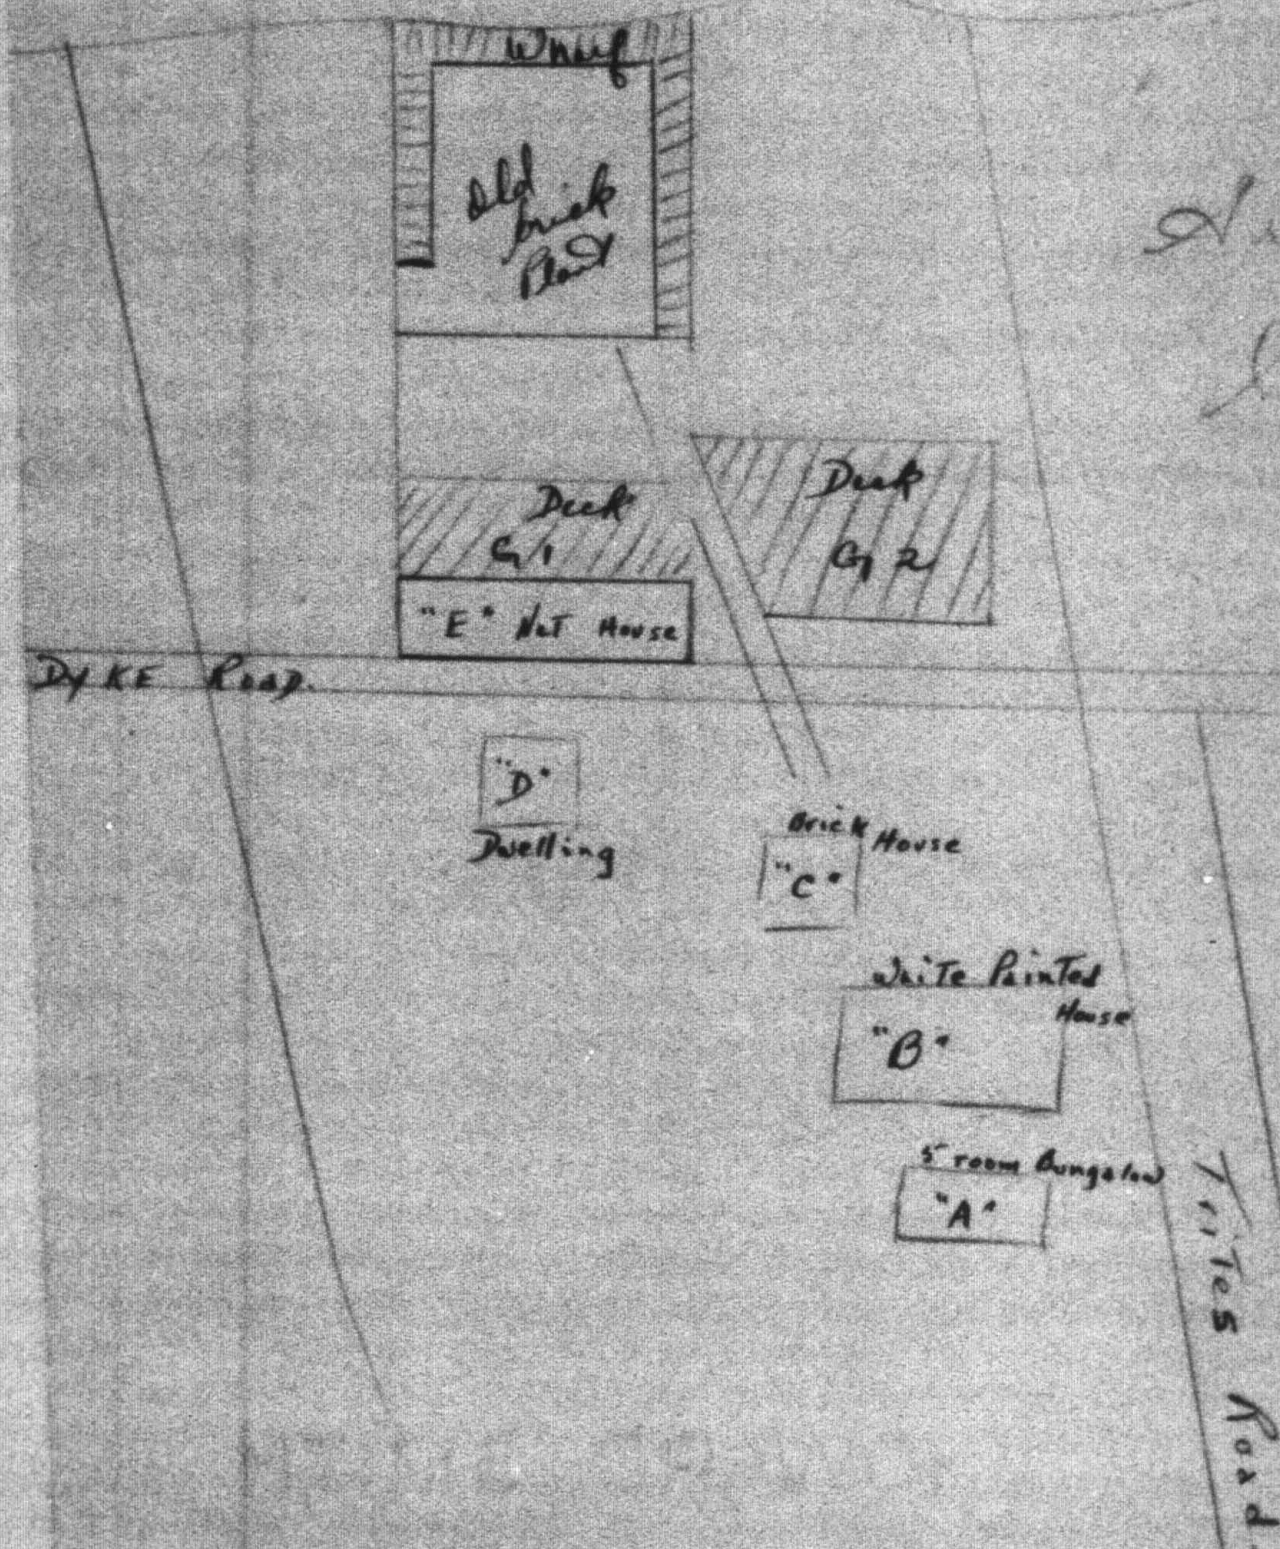 Wharf
Old
brick
Plant
Deck
G 1
Deck
G 2
"E" Net House
DYKE ROAD.
"D"
Dwelling
Brick House
"C"
White Painted
House
"B"
5 room Bungalow
"A"
Trites Road.